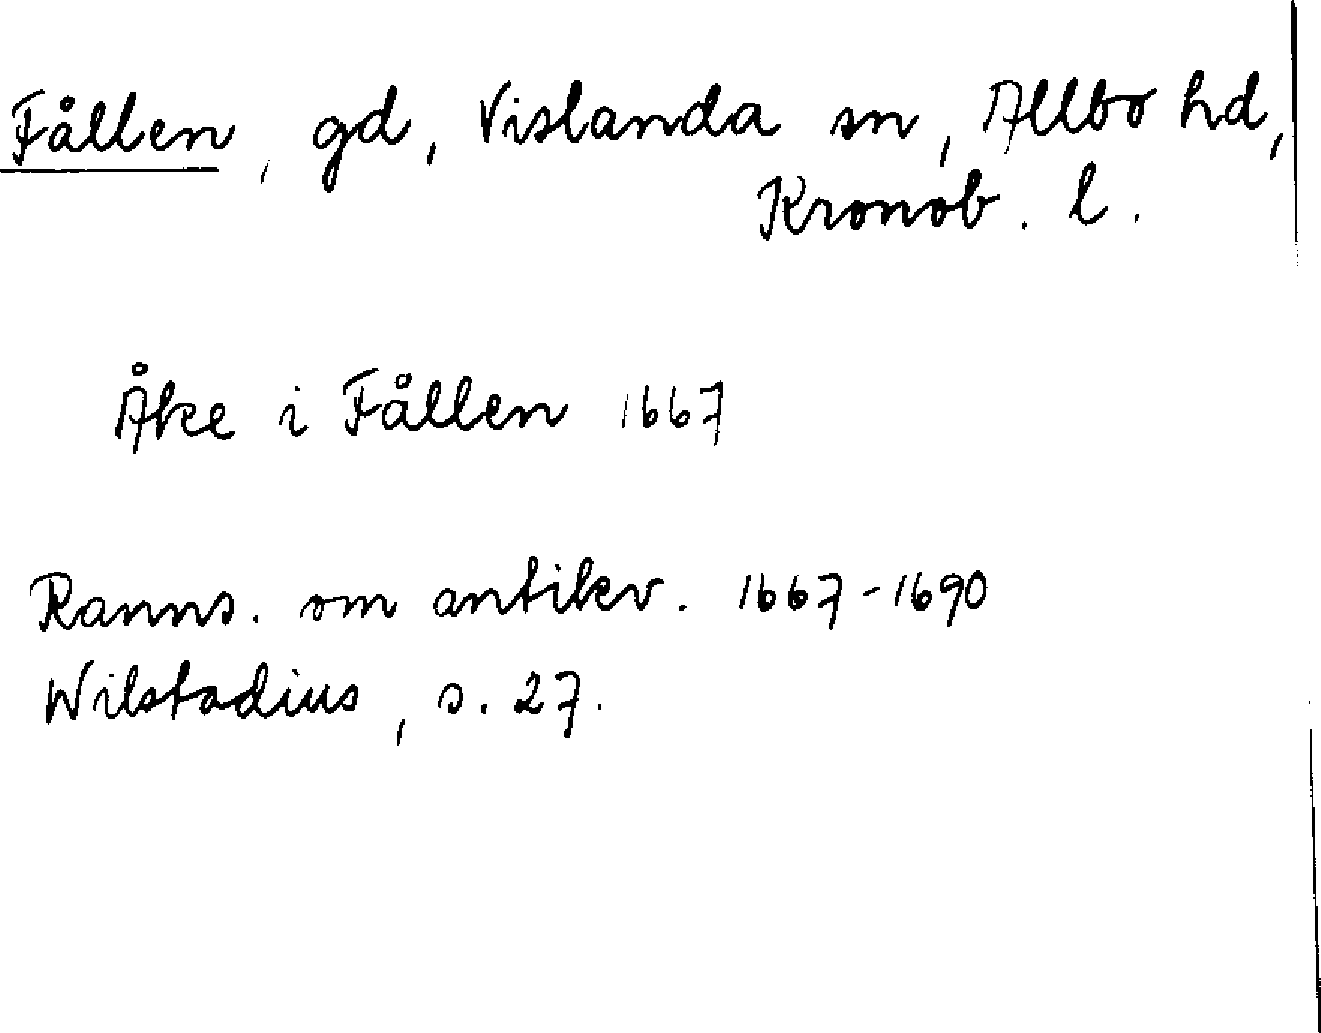 Fållen, gd, Vislanda sn, Allbo hd,
Kronob. l.
Åke i Fållen 1667
Ranns. om antikv. 1667-1690
Wilstadius, s. 27.